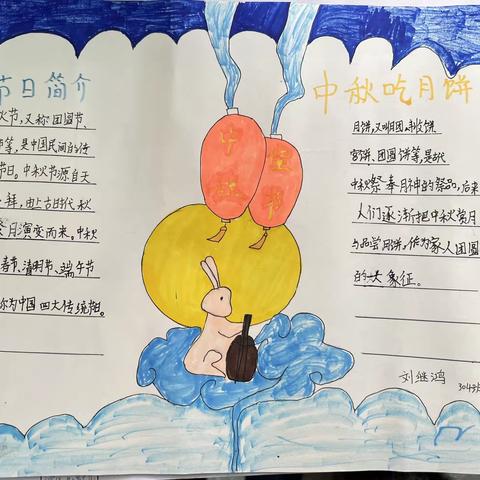 节日简介
火节，又称团圆节、
节等，是中国民间的传
节日。中秋节源自天
拜，由上古时代秋
祭月演变而来。中秋
春节、清明节、端午节
称为中国四大传统节日。
中秋
佳节
中秋吃月饼
月饼，又叫月团、丰收饼
宫饼、团圆饼等，是古代
中秋祭奉月神的祭品，后来
人们逐渐把中秋赏月
与品尝月饼，作为家人团圆
的一大象征。
刘继鸿
304班